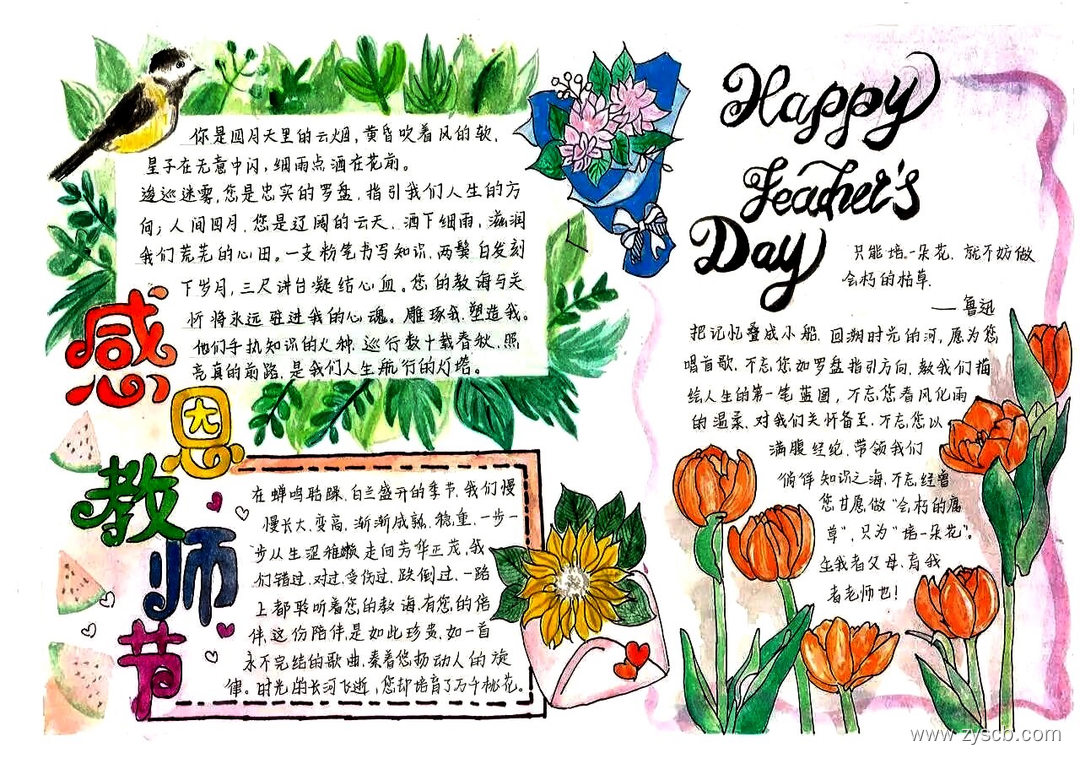 你是四月天里的云烟,黄昏吹着风的软,
星子在无意中闪,细雨点洒在花前。
逡巡迷雾,您是忠实的罗盘,指引我们人生的方
向;人间四月,您是辽阔的云天,洒下细雨,滋润
我们荒芜的心田。一支粉笔书写知识,两鬓白发刻
下岁月,三尺讲台凝结心血。您的教诲与关
怀将永远驻进我的心魂。雕琢我,塑造我。
他们手执知识的火种,巡行数十载春秋,照
亮真的前路,是我们人生航行的灯塔。
感恩教师节
在蝉鸣聒噪,白兰盛开的季节,我们慢
慢长大,变高,渐渐成熟、稳重,一步一
步从生涩稚嫩走向芳华正茂,我
们错过、对过、受伤过、跌倒过,一路
上都聆听着您的教诲,有您的倍
伴,这份陪伴,是如此珍贵,如一首
永不完结的歌曲,奏着您扬动人的旋
律。时光的长河飞逝,您却培育了万千桃花。
Happy
Teacher's
Day
只能培一朵花,就不妨做
会朽的枯草.
——鲁迅
把记忆叠成小船,回溯时光的河,愿为您
唱首歌,不忘您如罗盘指引方向,教我们描
绘人生的第一笔蓝图,不忘您春风化雨
的温柔,对我们关怀备至,不忘您以
满腹经纶,带领我们
徜徉知识之海,不忘,经曾
您甘愿做"会朽的腐
草",只为"培一朵花"。
生我者父母,育我
者老师也!
www.zyscb.com